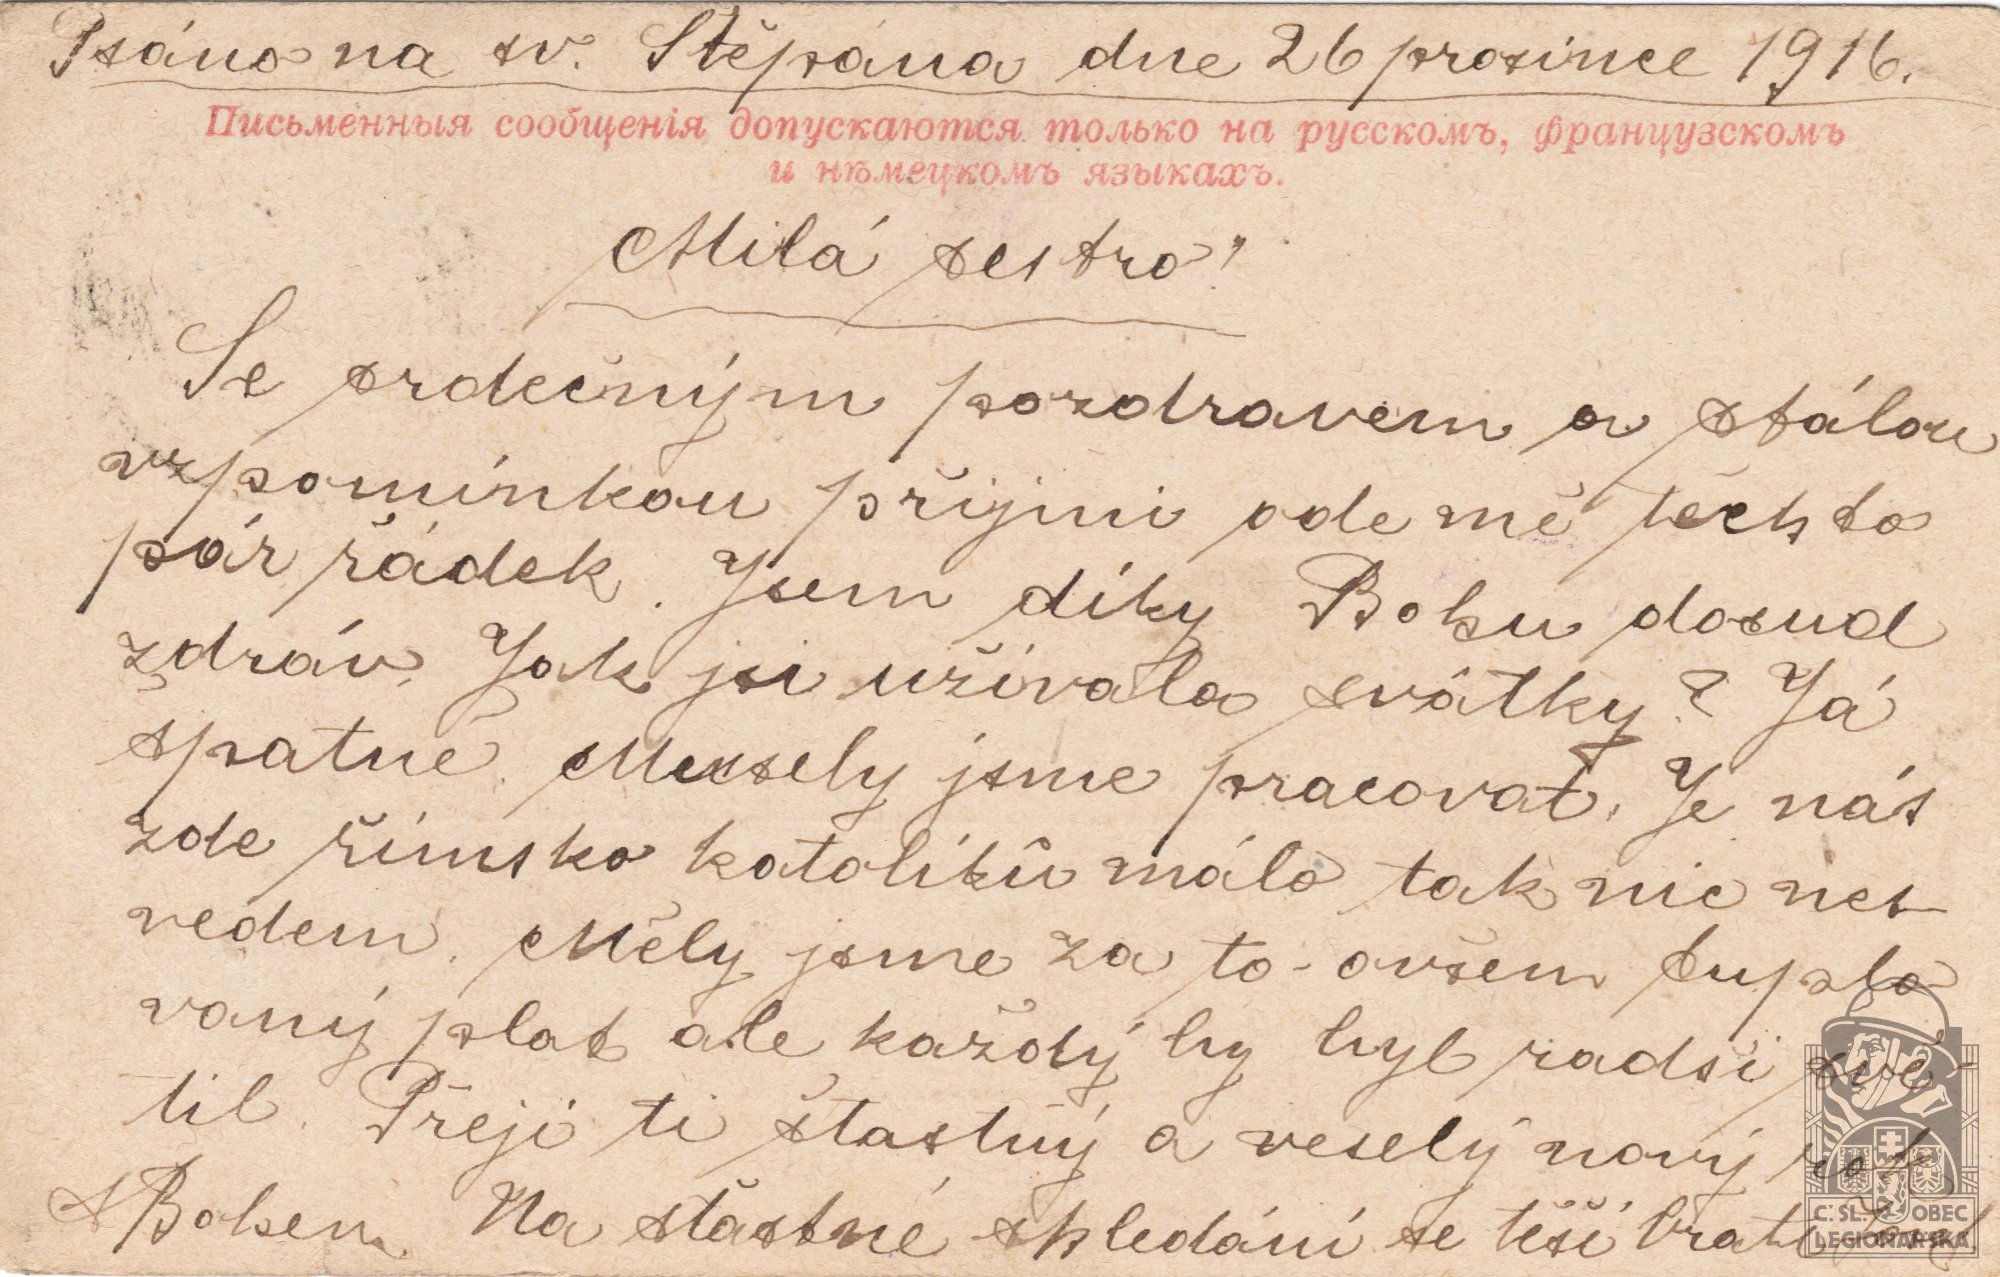 Psáno na sv. Štěpána dne 26 prosince 1916.
Письменныя сообщенія допускаются только на русскомъ, французскомъ
и нѣмецкомъ языкахъ.
Milá sestro!
Se srdečným pozdravem a stálou
vzpomínkou přijmi ode mě těchto
pár řádek. Jsem díky Bohu dosud
zdráv. Jak jsi užívala svátky? Já
špatně. Musely jsme pracovat. Je nás
zde římsko katolíků málo tak nic nes-
vedem. Měly jsme za to ovšem duplo
vaný plat ale každý by byl radši svě-
til. Přeji ti šťastný a veselý nový rok
S Bohem. Na šťastné shledání se těší bratr
Č. SL. OBEC
LEGIONÁŘSKÁ